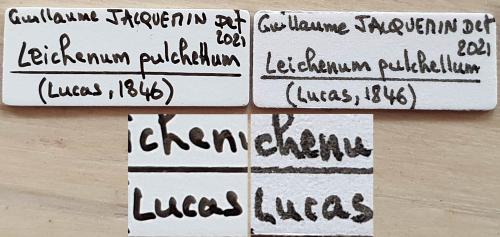 Guillaume JACQUEMIN Det
2021
Leichenum pulchellum
(Lucas, 1846)
Guillaume JACQUEMIN Det
2021
Leichenum pulchellum
(Lucas, 1846)
ichenu
Lucas
chenu
Lucas